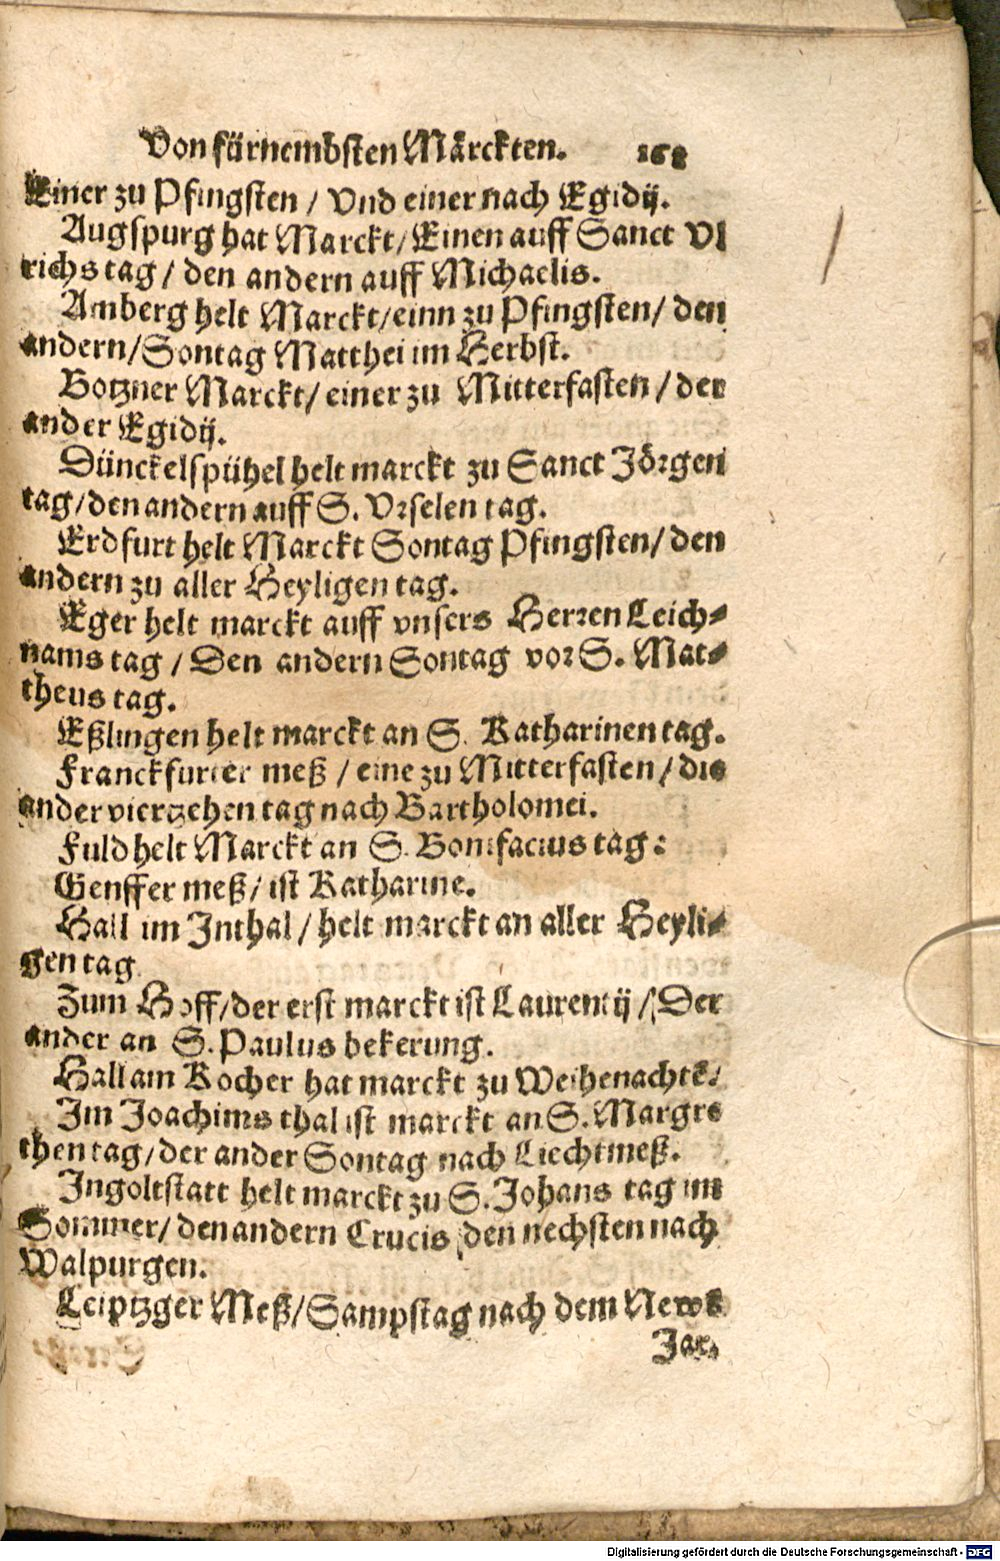 Von fürnembsten Märckten. 168
Einer zu Pfingsten / Vnd einer nach Egidij.
Augspurg hat Marckt / Einen auff Sanct Vl
richs tag / den andern auff Michaelis.
Amberg helt Marckt / einn zu Pfingsten / den
andern / Sontag Matthei im Herbst.
Botzner Marckt / einer zu Mitterfasten / der
ander Egidij.
Dünckelspühel helt marckt zu Sanct Jörgen
tag / den andern auff S. Vrselen tag.
Erdfurt helt Marckt Sontag Pfingsten / den
andern zu aller Heyligen tag.
Eger helt marckt auff vnsers Herren Leich-
nams tag / Den andern Sontag vor S. Mat-
theus tag.
Eßlingen helt marckt an S. Katharinen tag.
Franckfurter meß / eine zu Mitterfasten / die
ander viertzehen tag nach Bartholomei.
Fuld helt Marckt an S. Bonifacius tag:
Genffer meß / ist Katharine.
Hall im Inthal / helt marckt an aller Heyli-
gen tag
Zum Hoff / der erst marckt ist Laurentij / Der
ander an S. Paulus bekerung.
Hall am Kocher hat marckt zu Weihenachtē.
Im Joachims thal ist marckt an S. Margre
then tag / der ander Sontag nach Liechtmeß.
Ingoltstatt helt marckt zu S. Johans tag im
Sommer / den andern Crucis den nechsten nach
Walpurgen.
Leiptzger Meß / Sampstag nach dem Newē
Jar.
Digitalisierung gefördert durch die Deutsche Forschungsgemeinschaft - DFG